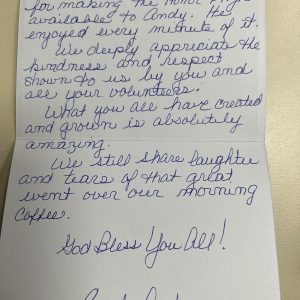 for making the Honor Flight
available to Andy. He
enjoyed every minute of it.
We deeply appreciate the
kindness and respect
shown to us by you and
all your volunteers.
What you all have created
and grown is absolutely
amazing.
We still share laughter
and tears of that great
event over our morning
coffee.
God Bless You All!